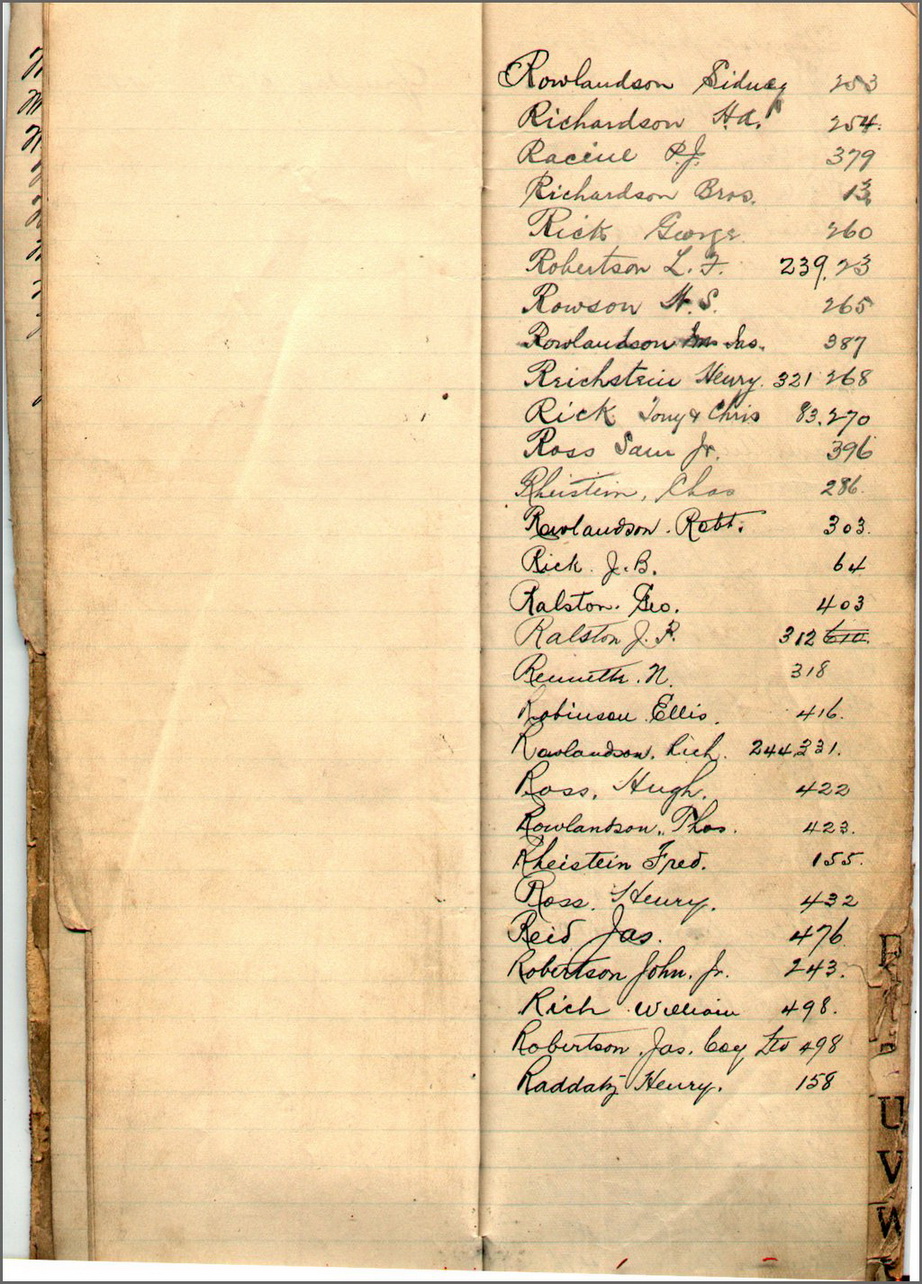 Rowlandson Sidney 253
Richardson Hd. 254.
Racine P.J. 379
Richardson Bros. 13
Rick George 260
Robertson L.F. 239, 23
Rowson H.S. 265
Rowlandson Jas. 387
Reichstein Henry. 321 268
Rick Tony & Chris 83, 270
Ross Sam Jr. 396
Rheistein, Chas 286.
Rowlandson. Robt. 303.
Rick. J.B. 64
Ralston. Geo. 403
Ralston J. P. 312
Renneth. N. 318
Robinson. Ellis. 416.
Rowlandson. Rich. 244, 331.
Ross. Hugh. 422
Rowlandson. Thos. 423.
Rheistein Fred. 155.
Ross. Henry. 432
Reid Jas. 476
Robertson John. Jr. 243.
Rich William 498.
Robertson. Jas. Coy Ltd 498
Raddatz Henry. 158
U
V
W